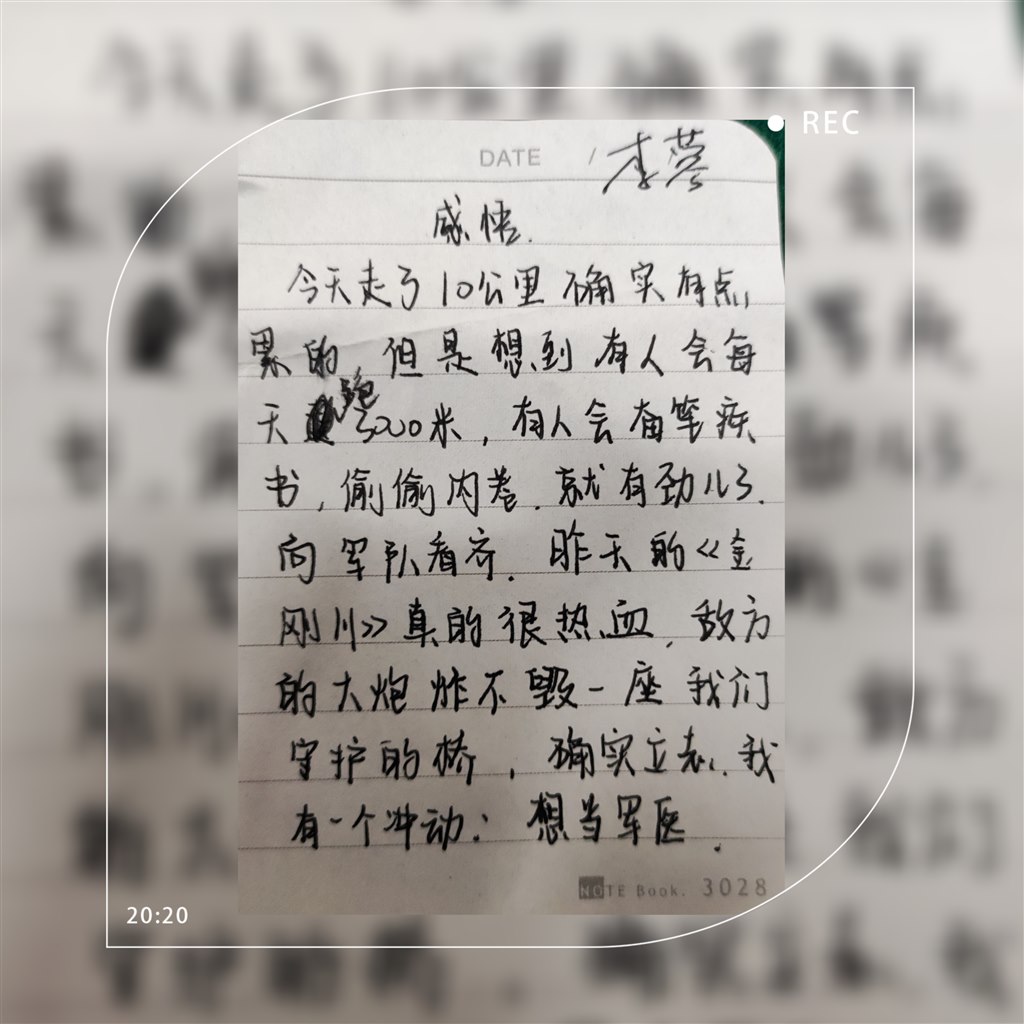 REC
DATE / 李蓉
感悟.
今天走了10公里 确实有点
累的, 但是想到有人会每
天跑3000米, 有人会奋笔疾
书, 偷偷内卷. 就有劲儿了.
向军队看齐. 昨天的《金
刚川》真的很热血, 敌方
的大炮炸不毁一座我们
守护的桥, 确实立志. 我
有一个冲动: 想当军医.
NOTE Book. 3028
20:20